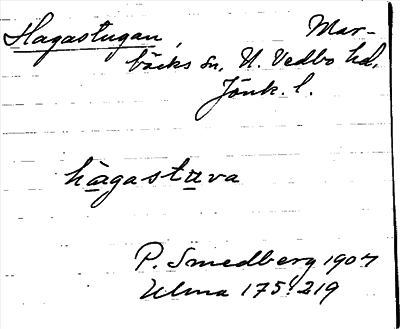 Hagastugan, Mar-
bäcks sn, N. Vedbo hd,
Jönk. l.
hagastuva
P. Smedberg 1907
Ulma 175:219